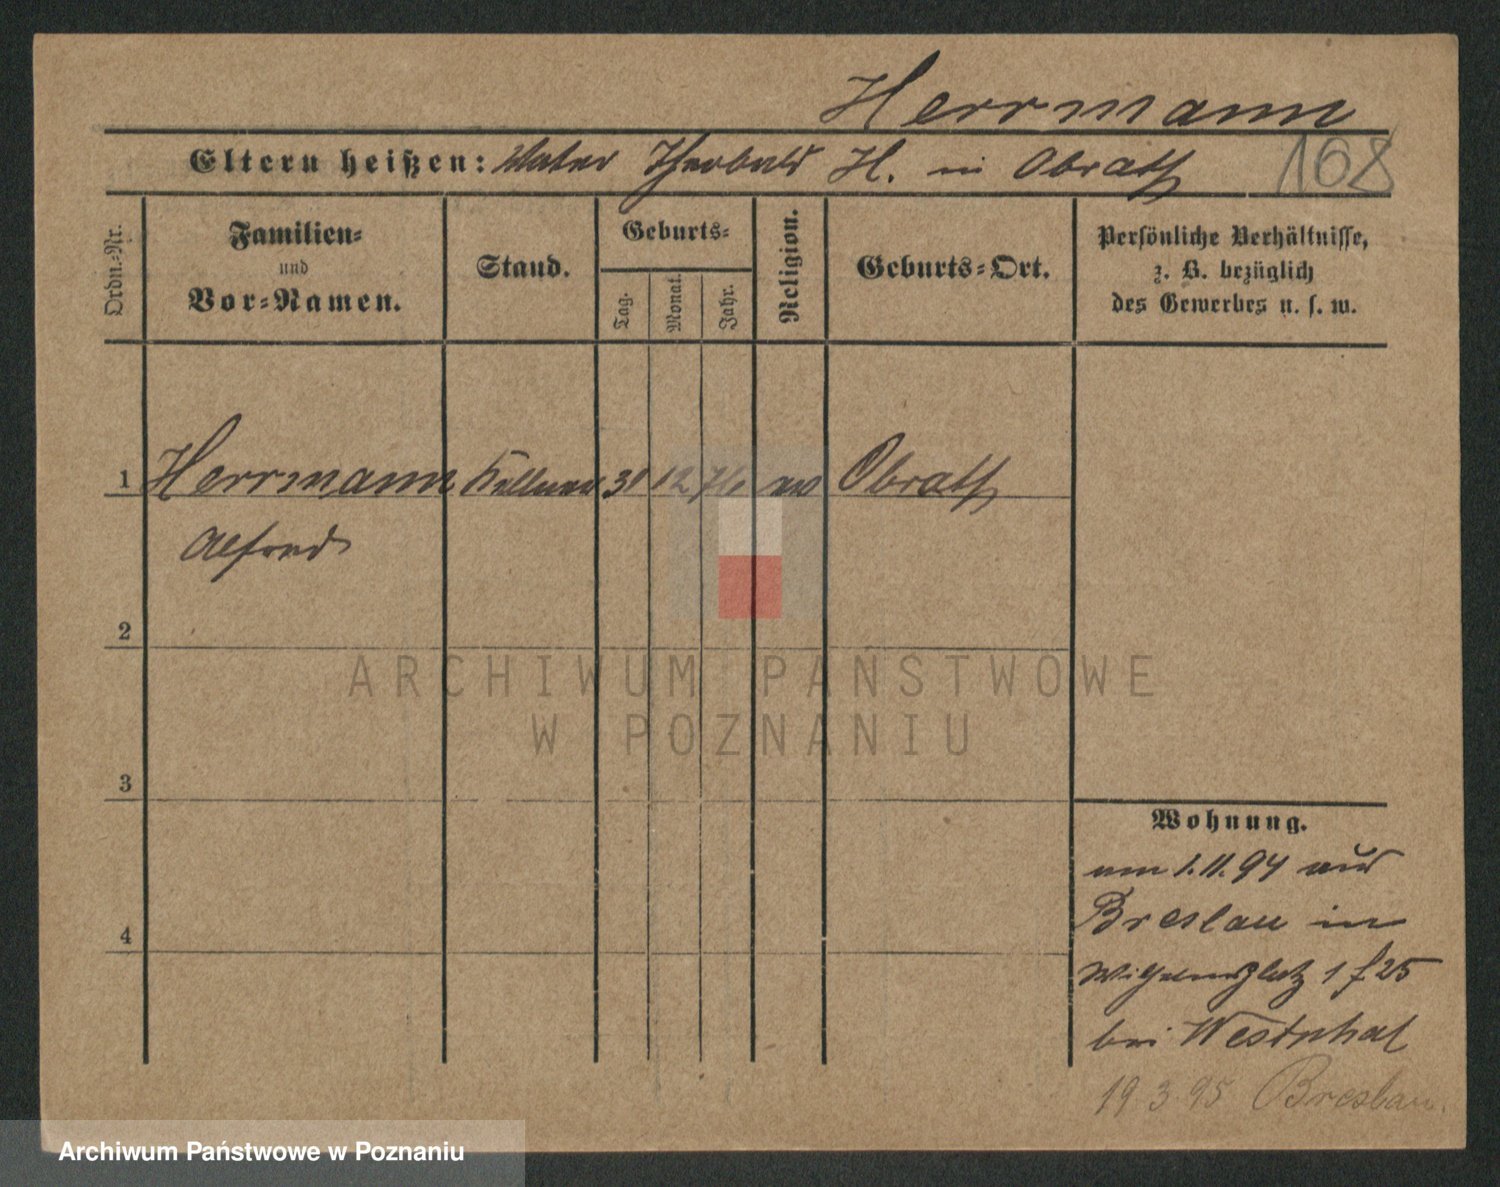 Herrmann
Eltern heißen: Vater Theobald H. in Obrath
168
Ordn.-Nr.
Familien-
und
Vor-Namen.
Stand.
Geburts-
Tag.
Monat.
Jahr.
Religion.
Geburts-Ort.
Persönliche Verhältnisse,
z. B. bezüglich
des Gewerbes u. s. w.
1 Herrmann Kellner 31 12 76 ev Obrath
Alfred
2
3
4
Wohnung.
am 1.11.94 aus
Breslau in
Wilhelmsplatz 1
bei Westphal
19.3.95 Breslau.
ARCHIWUM PAŃSTWOWE
W POZNANIU
Archiwum Państwowe w Poznaniu